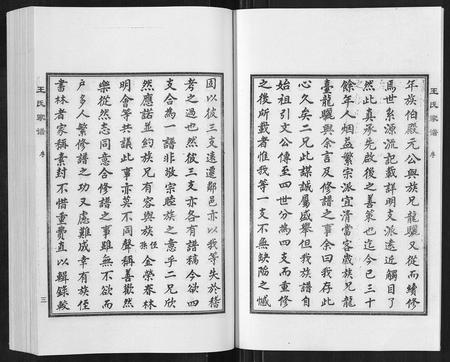 王氏家譜
序
年族伯殿元公與族兄龍驤又從而續修
焉世系源流記載詳明支派遠近觸目了
然此真承先啟後之善策也迄今已三十
餘年人烟益繁宗派宜清當客歲族兄龍
臺龍驤與余言及修譜之事余曰我存此
心久矣二兄此謀誠屬盛舉但我族譜自
始祖引文公傳至四世分為四支而重修
之後所載者惟我等一支不無缺陷之憾
因以彼三支遠遷鄰邑亦以我等失於稽
考之過也然彼三支亦各有譜稿今欲四
支合為一譜非敬宗睦族之意乎二兄欣
然應諾並約族兄有容與族侄孫金榮春林
明會等共議此事亦莫不同聲稱善歡然
樂從然志同意合修譜之事雖無不欲而
戶多人繁修譜之功又處難成幸有族侄
書林者家稱素封不惜重費直以輯錄較
王氏家譜
序
三